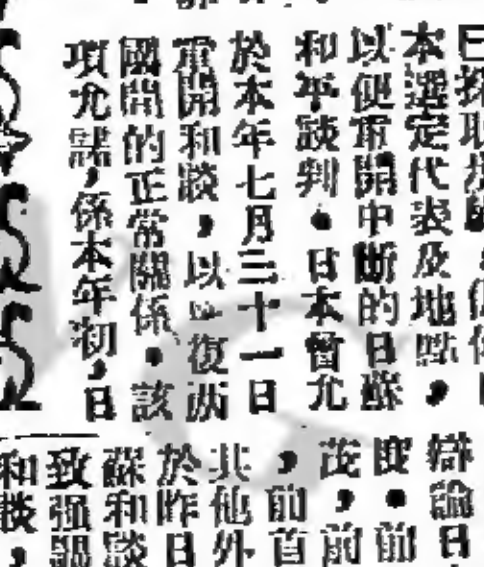 本選定代表及地點，
以便重開中斷的日蘇
和平談判。日本曾允
於本年七月三十一日
重開和談，以恢復兩
國間的正常關係。該
項允諾，係本年初，日
辯論日
度。前
茂，前
，前首
共他外
於昨日
蘇和談
致强調
和談，